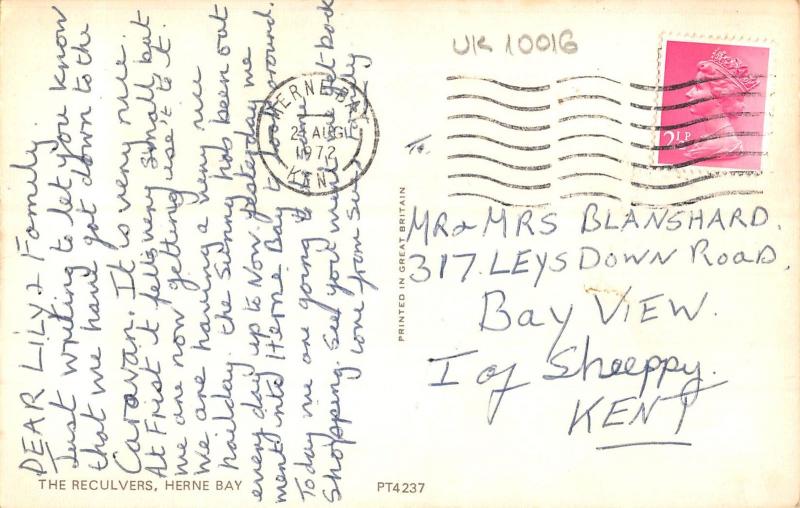 DEAR LILY & Family.
Just writing to let you know
that we have got down to the
Caravan. It is very nice.
At Frist it felt very small but
we are now getting use't to it.
We are having a very nice
hailday. the Sunny has been out
every day up to Now. yesterday we
went into Herne Bay to look around.
Today we are going to do
Shopping. See you when we get back
love from
HERNE BAY
2 AUG
1972
KENT
UK 10016
2½P
To.
MR & MRS BLANSHARD.
317. LEYSDOWN ROAD.
Bay VIEW.
I of Sheeppy.
KENT
PRINTED IN GREAT BRITAIN
THE RECULVERS, HERNE BAY
PT4237